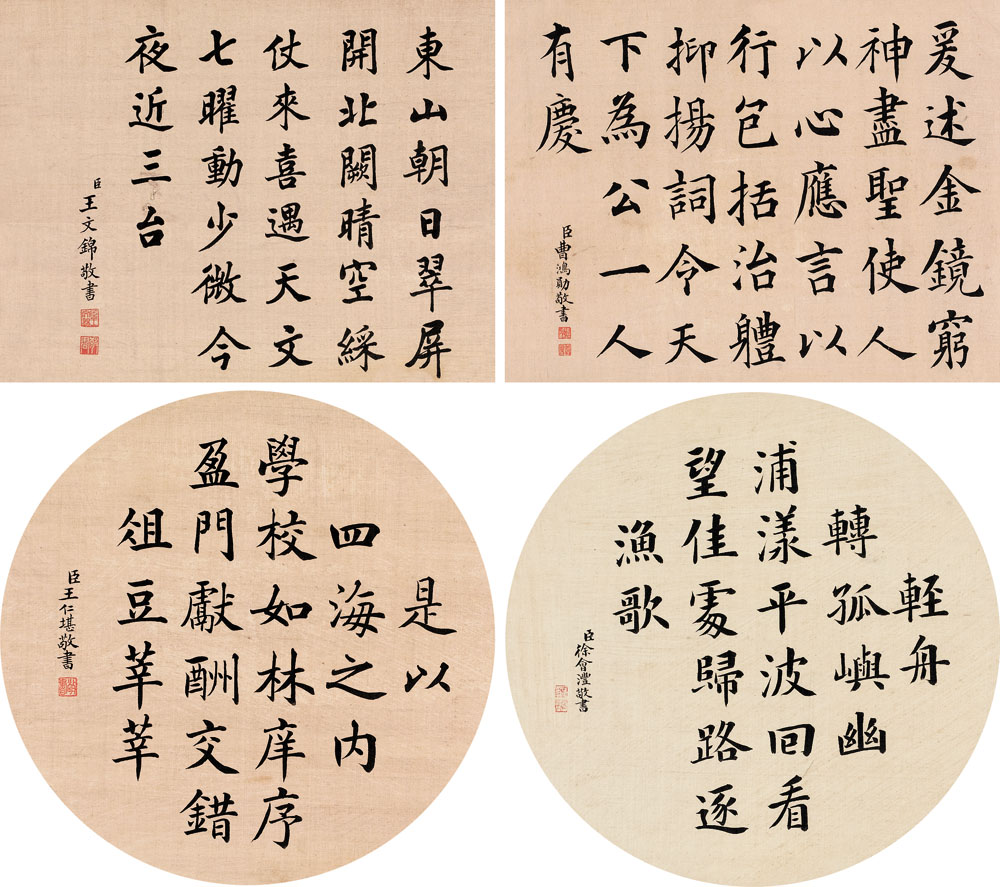 東山朝日翠屏
開北闕晴空綵
仗來喜遇天文
七曜動少微今
夜近三台
臣王文錦敬書
爰述金鏡窮
神盡聖使人
以心應言以
行包括治體
抑揚詞令天
下為公一人
有慶
臣曹鴻勛敬書
是以
四海之内
學校如林庠序
盈門獻酬交錯
俎豆莘莘
臣王仁堪敬書
輕舟
轉孤嶼幽
浦漾平波回看
望佳處歸路逐
漁歌
臣徐會灃敬書